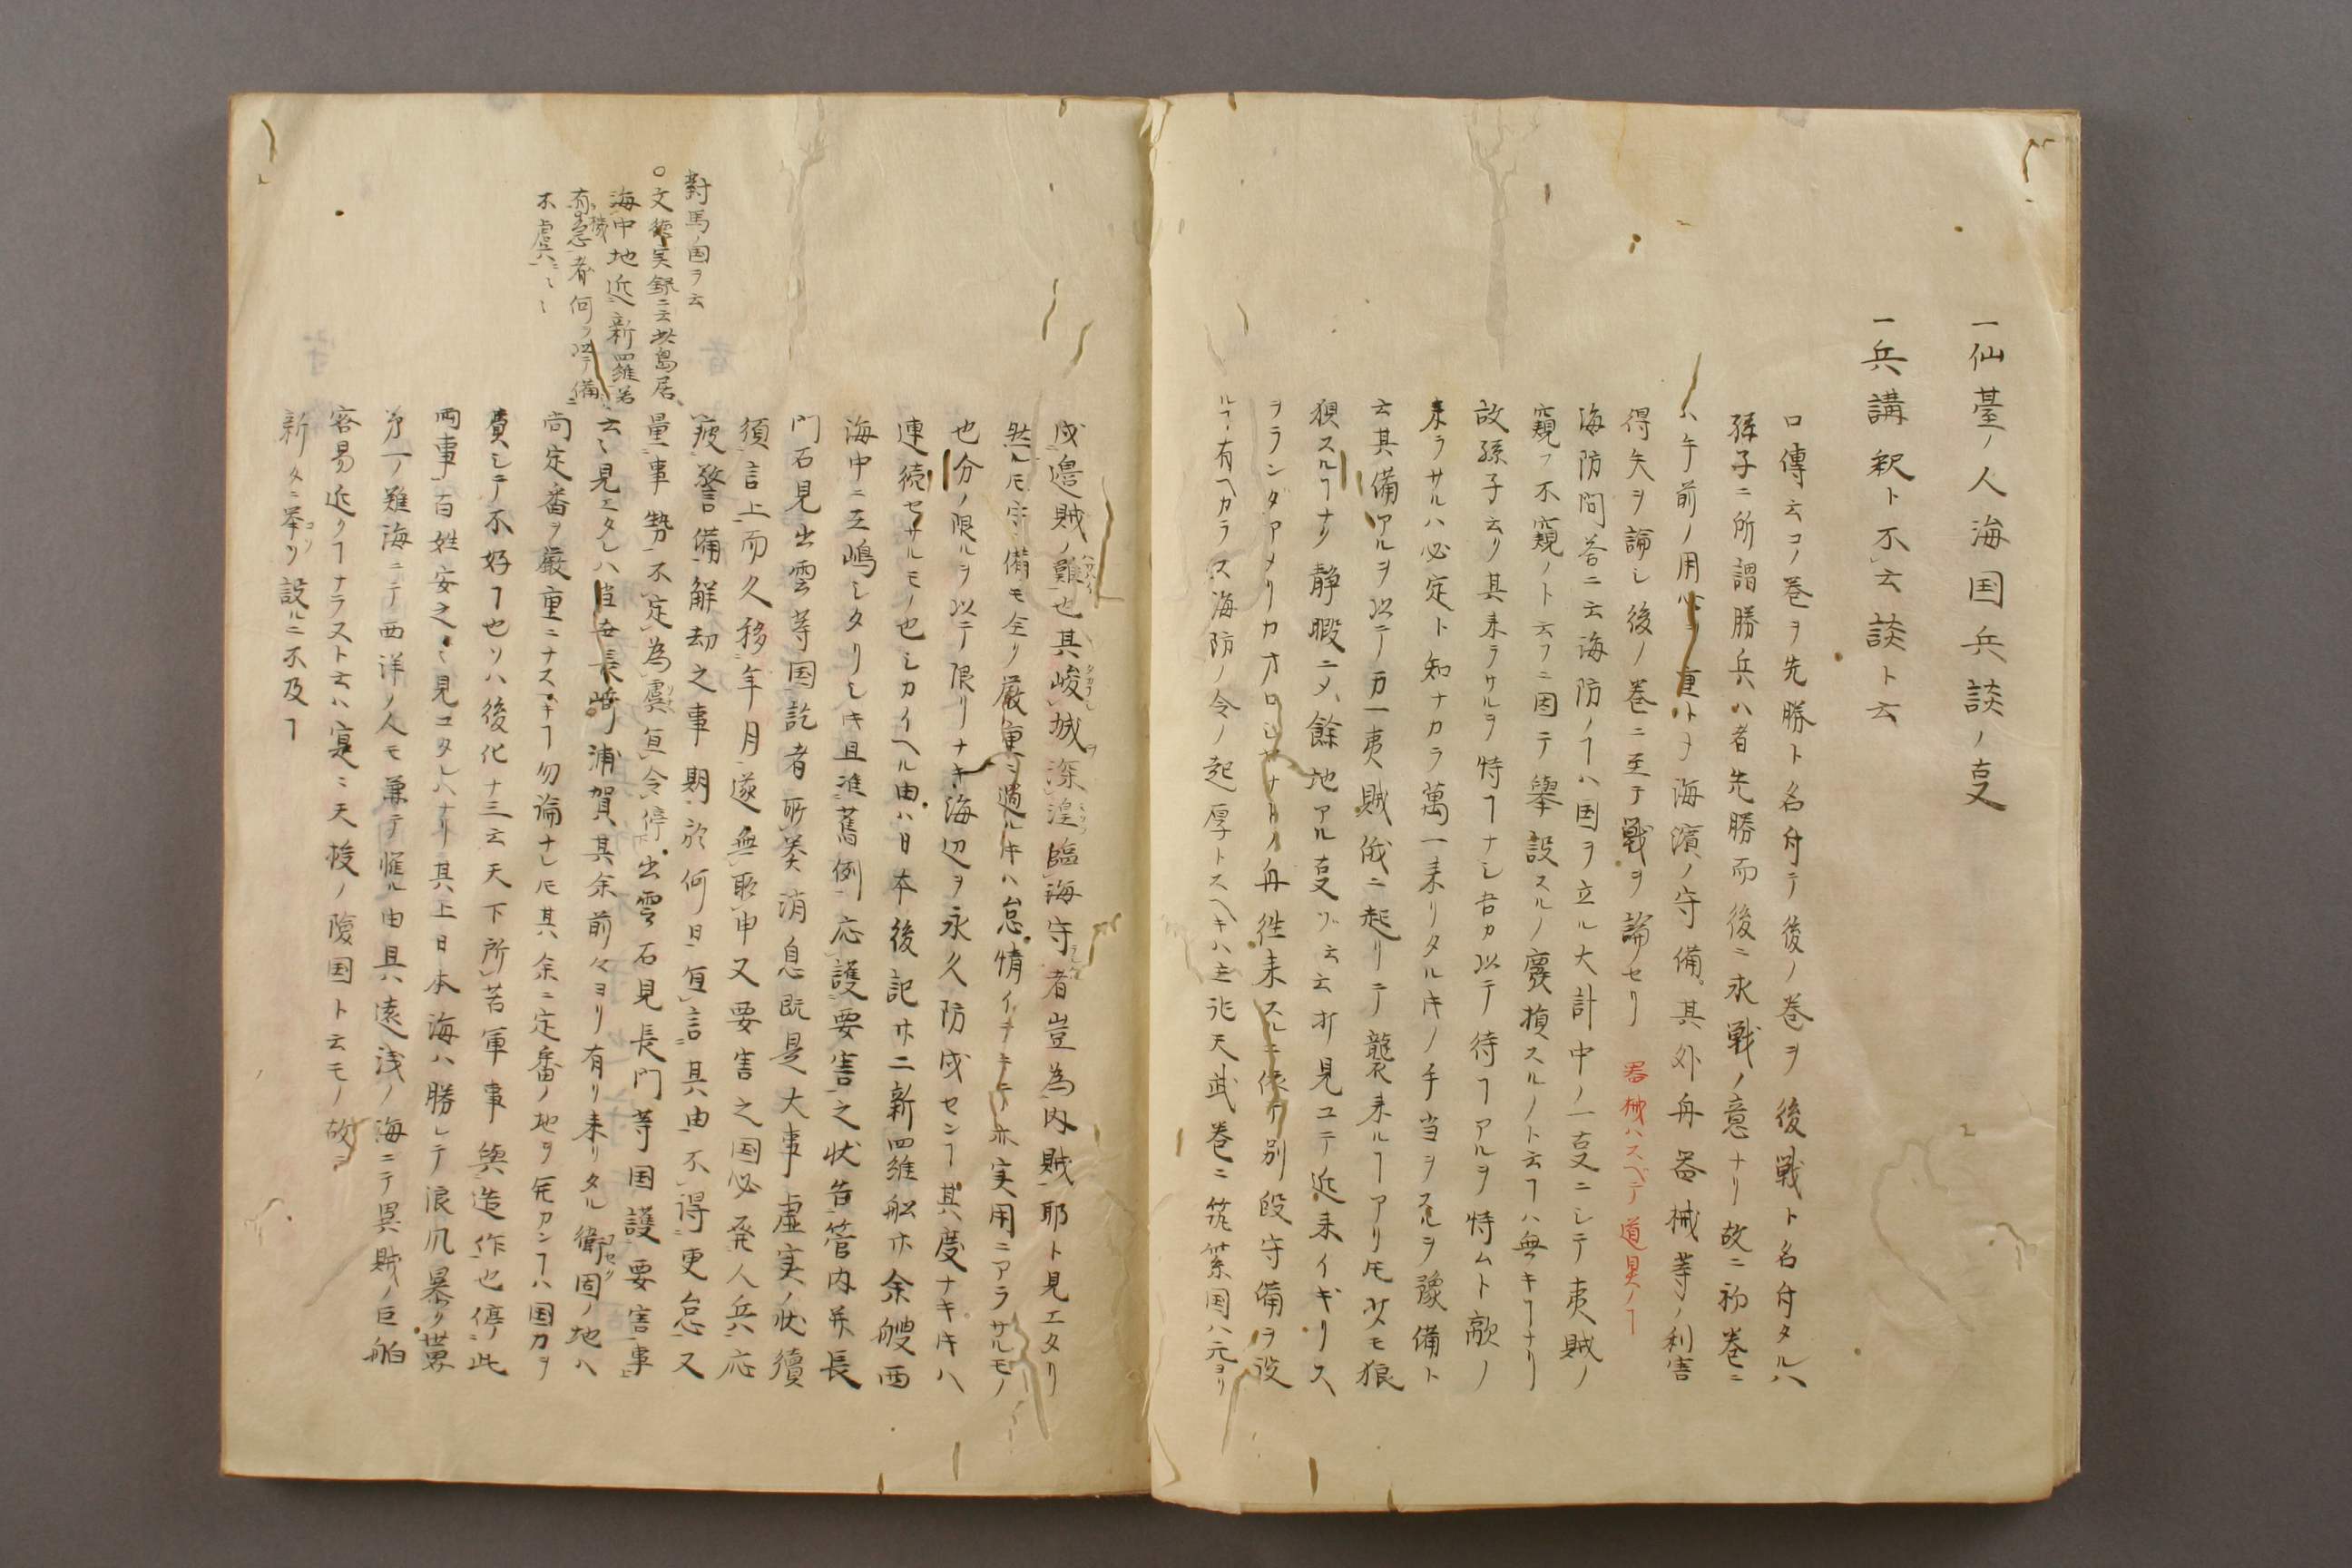 一仙臺ノ人海国兵談ノ叓
一兵講釈ト不云談ト云
口傳云コノ巻ヲ先勝ト名付テ後ノ巻ヲ後戦ト名付タルハ
孫子ニ所謂勝兵ハ者先勝而後ニ求戦ノ意ナリ故ニ初巻ニ
ハ午前ノ用心ヲ重トヲ海濱ノ守備其外舟器械等ノ利害
得失ヲ論シ後ノ巻ニ至テ戦ヲ論セリ 器械ハスベテ道具ノヿ
海防問答ニ云海防ノヿハ国ヲ立ル大計中ノ一叓ニシテ夷賊ノ
窺フ不窺ノト云フニ因テ擧設スルノ廢損スルノト云ヿハ無キヿナリ
故孫子云リ其来ラサルヲ恃ヿナシ吾カ以テ待ヿアルヲ恃ムト敵ノ
来ラサルハ必定ト知ナカラ萬一来リタルキノ手当ヲスルヲ豫備ト
云其備アルヲ以テ万一夷賊俄ニ起リテ襲来ルヿアリ𪜈少モ狼
狽スルヿナク静暇ニメ餘地アル叓ゾ云云ト見ユテ近来イギリス
ヲランダアメリカオロシヤナドノ舟徃来スルニ依テ別段守備ヲ設
ルヿ有ヘカラス海防ノ令ノ起厚トスヘキハ既ニ天武巻ニ筑紫国ハ元ヨリ
戍邉賊ノ難也其峻城深湟臨海守者豈為内賊耶ト見エタリ
然ル𪜈守備モ全ク厳重ニ過ルキハ怠惰イテキテ亦実用ニアラサルモノ
也分ノ限ルヲ以テ限リナキ海辺ヲ永久防戍センヿ其度ナキキハ
連続セサルモノ也シカイヘル由ハ日本後記廾二新羅船廾余艘西
海中ニ至嶋シタリシキ且准舊例応護要害之状告管内并長
門石見出雲等国訖者所奏消息既是大事虚実ノ状續
須言上而久移年月遂無取申又要害之国必発人兵応
疲警備解却之事期於何日宜言其由不得更怠又
量事勢不定為虞宜令停出雲石見長門等国護要害事
云々見エタレハ当世長崎浦賀其余前々ヨリ有リ来リタル衛固ノ地ハ
尚定番ヲ厳重ニナスヘキヿ勿論ナレ𪜈其余ニ定番ノ地ヲ宛カンヿハ国力ヲ
費シテ不好ヿ也ソハ後化ナ三云天下所苦軍事與造作也停此
両事百姓安之ト見コタレハナリ其上日本海ハ勝レテ浪凡暴ク世界
第一ノ難海ニテ西洋ノ人モ兼テ懼ル由具遠浅ノ海ニテ異賊ノ巨舶
容易近クヿナラスト云ハ寔ニ天梭ノ険国ト云モノ故ニ
新タニ挙リ設ルニ不及ヿ
對馬ノ国ヲ云
○文徳実録ニ云此島居
海中地近新羅若
有機急者何ヲ以テ備
不虞ニ云々